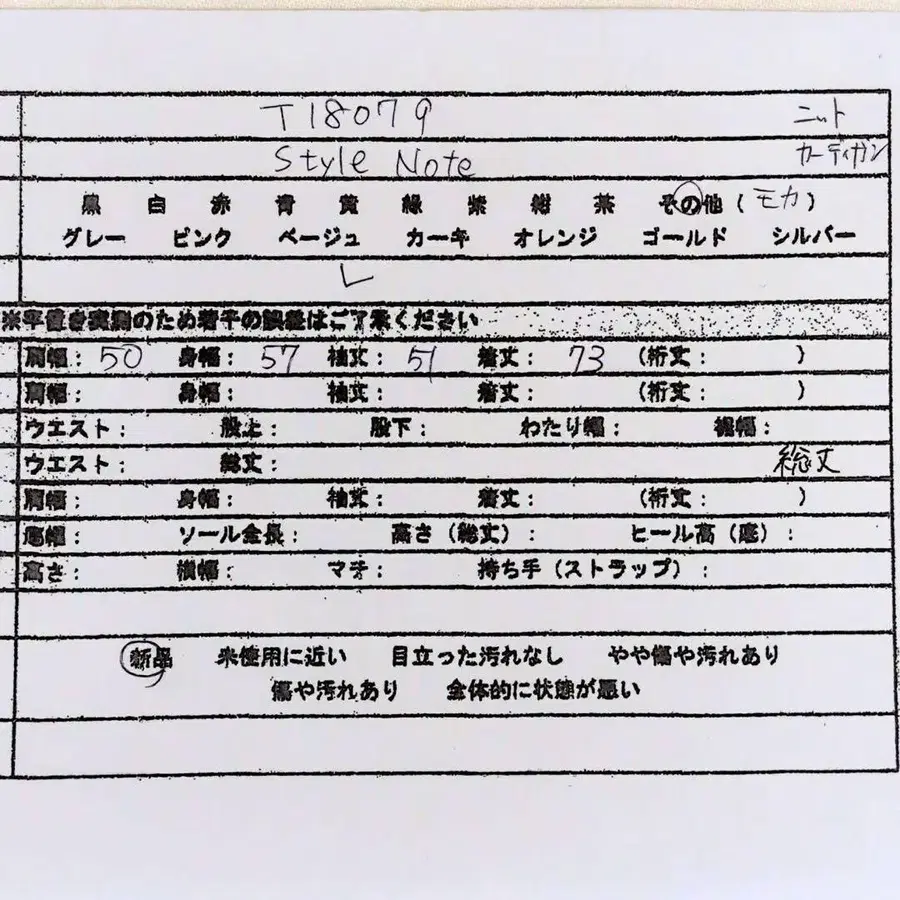 T18079 ニット
Style Note カーディガン
黒 白 赤 青 黄 緑 紫 紺 茶 その他 ( モカ )
グレー ピンク ベージュ カーキ オレンジ ゴールド シルバー
※平置き実測のため若干の誤差はご了承ください
肩幅: 50 身幅: 57 袖丈: 51 着丈: 73 (裄丈: )
肩幅: 身幅: 袖丈: 着丈: (裄丈: )
ウエスト: 股上: 股下: わたり幅: 裾幅:
ウエスト: 総丈: 総丈
肩幅: 身幅: 袖丈: 着丈: (裄丈: )
底幅: ソール全長: 高さ(総丈): ヒール高(底):
高さ: 横幅: マチ: 持ち手(ストラップ):
新品 未使用に近い 目立った汚れなし やや傷や汚れあり
傷や汚れあり 全体的に状態が悪い